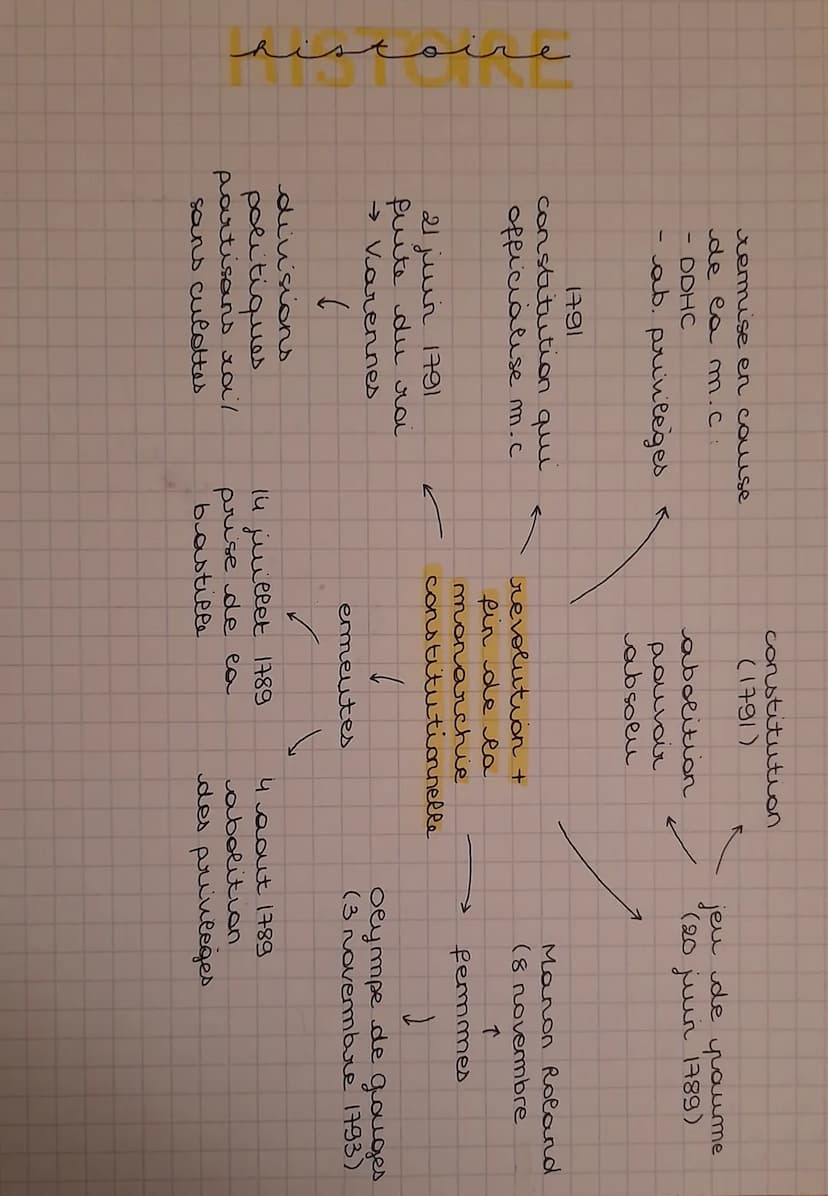 histoire
HISTOIRE
remise en cause
de la m.c :
- DDHC
- ab. privilèges
constitution
(1791)
abolition
pouvoir
absolu
jeu de paume
(20 juin 1789)
1791
constitution qui
officialise m.c
révolution +
fin de la
monarchie
constitutionnelle
Manon Roland
(8 novembre
femmes
Olympe de Gouges
(3 novembre 1793)
21 juin 1791
fuite du roi
→ Varennes
divisions
politiques
partisans roi/
sans culottes
emeutes
14 juillet 1789
prise de la
bastille
4 aout 1789
abolition
des privilèges